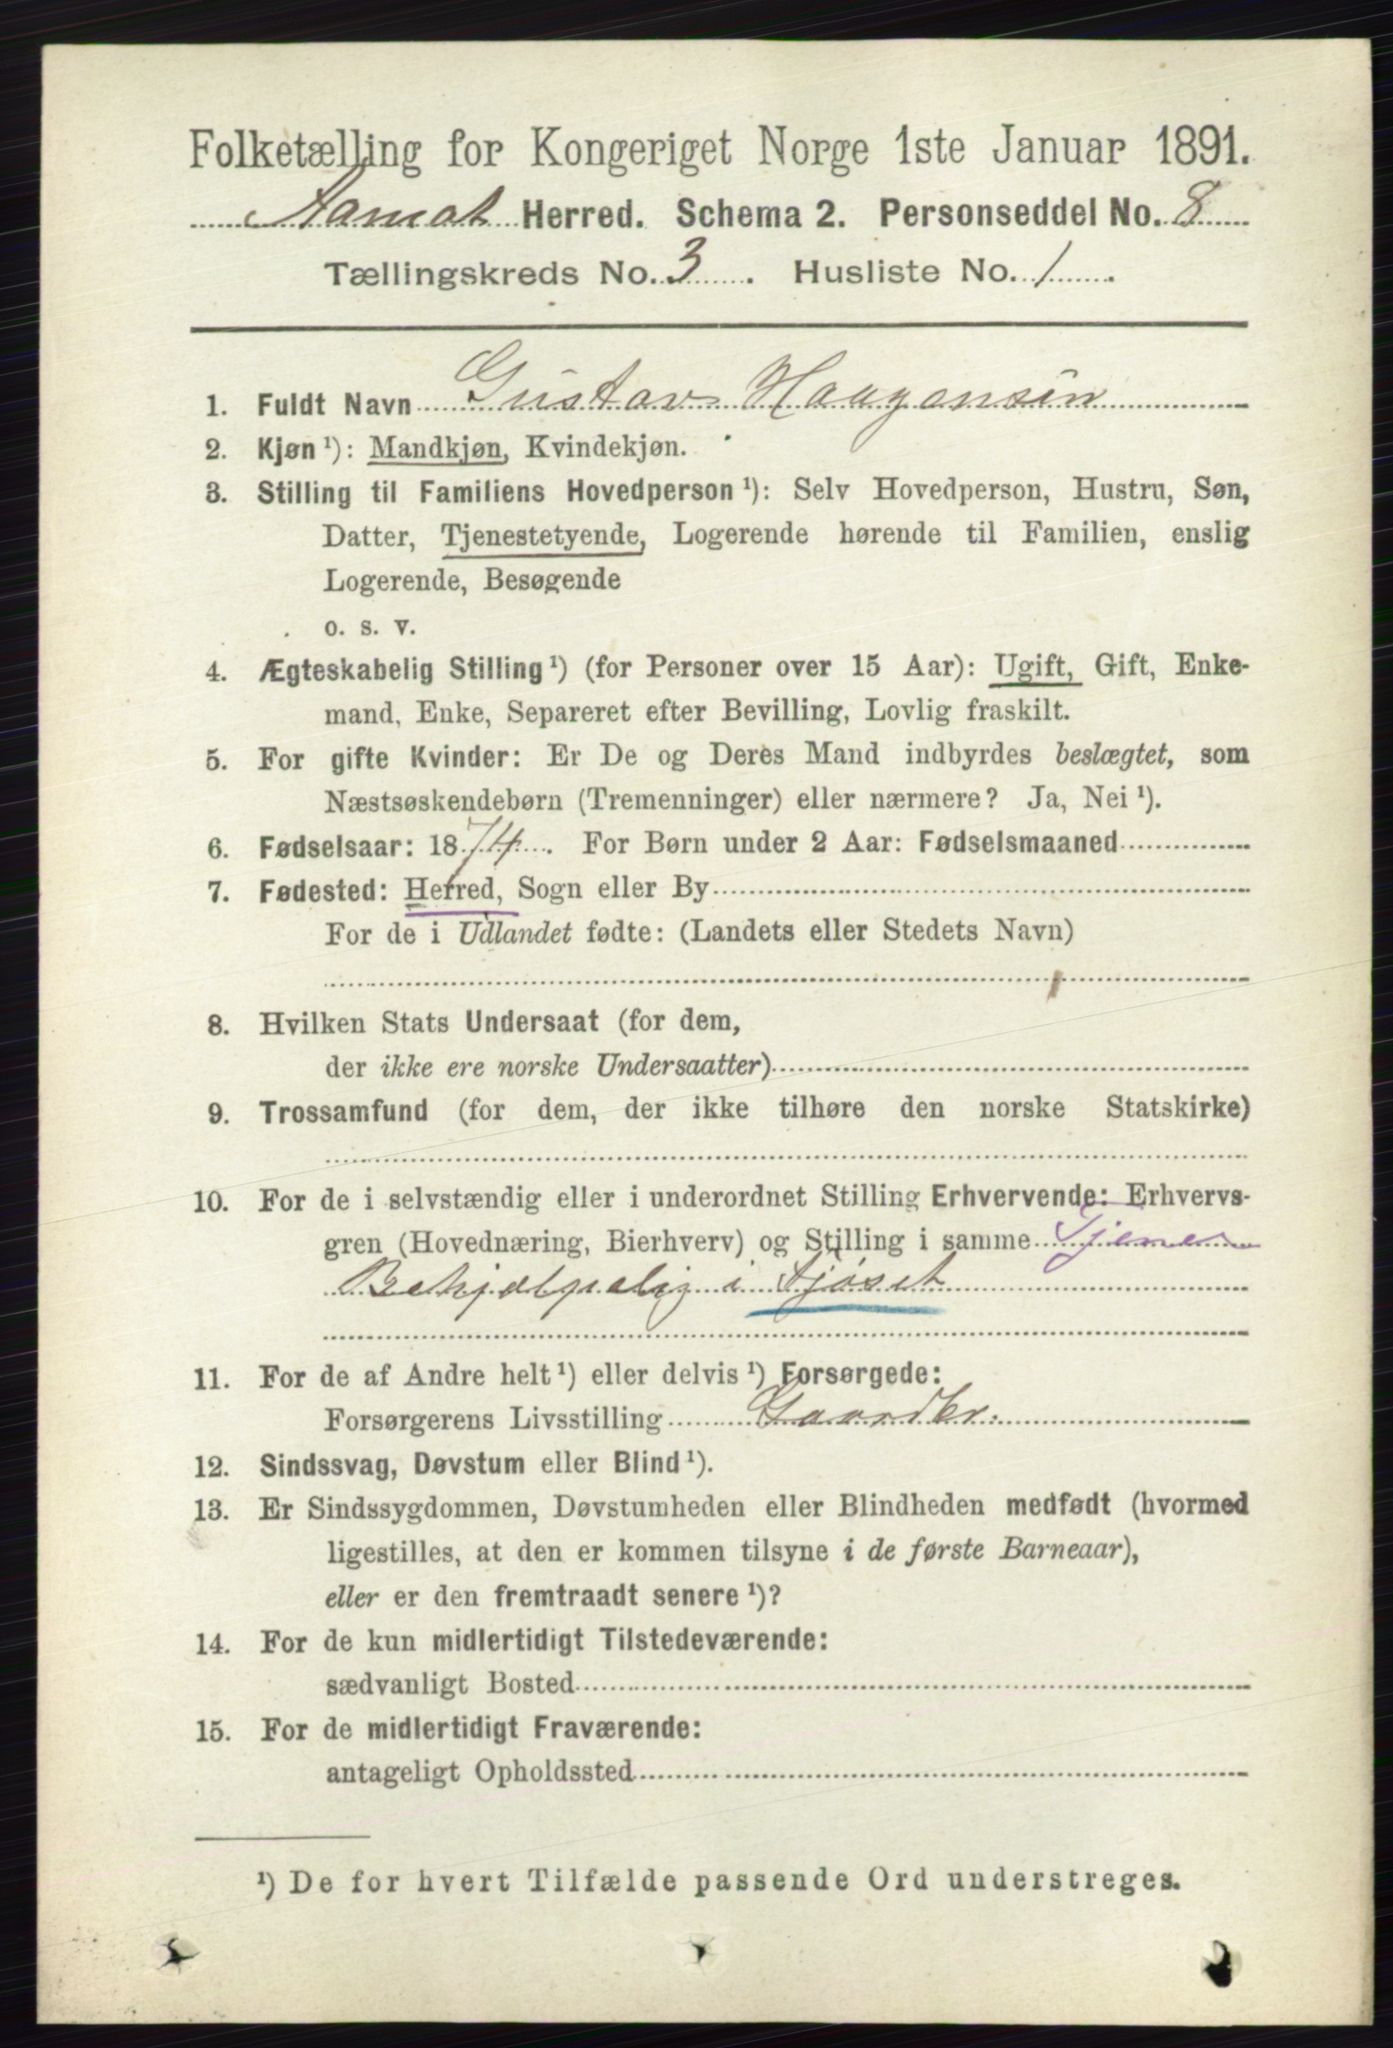 Folketælling for Kongeriget Norge 1ste Januar 1891.
Aamot Herred. Schema 2. Personseddel No. 8
Tællingskreds No. 3. Husliste No. 1.
1. Fuldt Navn Gustav Haagensen
2. Kjøn ¹): Mandkjøn, Kvindekjøn.
3. Stilling til Familiens Hovedperson ¹): Selv Hovedperson, Hustru, Søn,
Datter, Tjenestetyende, Logerende hørende til Familien, enslig
Logerende, Besøgende
o. s. v.
4. Ægteskabelig Stilling ¹) (for Personer over 15 Aar): Ugift, Gift, Enke-
mand, Enke, Separeret efter Bevilling, Lovlig fraskilt.
5. For gifte Kvinder: Er De og Deres Mand indbyrdes beslægtet, som
Næstsøskendebørn (Tremenninger) eller nærmere? Ja, Nei ¹).
6. Fødselsaar: 1874. For Børn under 2 Aar: Fødselsmaaned
7. Fødested: Herred, Sogn eller By
For de i Udlandet fødte: (Landets eller Stedets Navn)
8. Hvilken Stats Undersaat (for dem,
der ikke ere norske Undersaatter)
9. Trossamfund (for dem, der ikke tilhøre den norske Statskirke)
10. For de i selvstændig eller i underordnet Stilling Erhvervende: Erhvervs-
gren (Hovednæring, Bierhverv) og Stilling i samme Tjener
Behjælpelig i Fjøset
11. For de af Andre helt ¹) eller delvis ¹) Forsørgede:
Forsørgerens Livsstilling Gaardbr.
12. Sindssvag, Døvstum eller Blind ¹).
13. Er Sindssygdommen, Døvstumheden eller Blindheden medfødt (hvormed
ligestilles, at den er kommen tilsyne i de første Barneaar),
eller er den fremtraadt senere ¹)?
14. For de kun midlertidigt Tilstedeværende:
sædvanligt Bosted
15. For de midlertidigt Fraværende:
antageligt Opholdssted
¹) De for hvert Tilfælde passende Ord understreges.